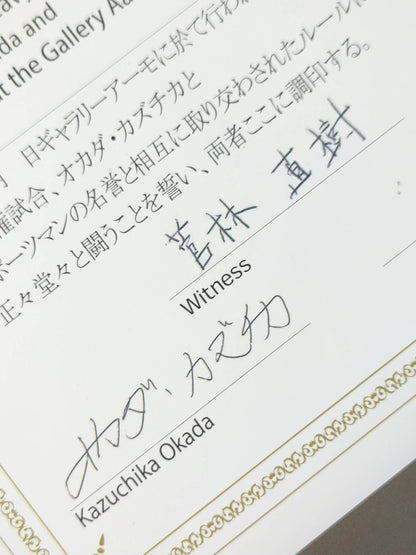 da and
at the Gallery
日ギャラリーアーモに於て行わ
権試合、オカダ・カズチカと
ポーツマンの名誉と相互に取り交わされたルールに
正々堂々と闘うことを誓い、両者ここに調印する。
菅林 直樹
Witness
オカダ、カズチカ
Kazuchika Okada